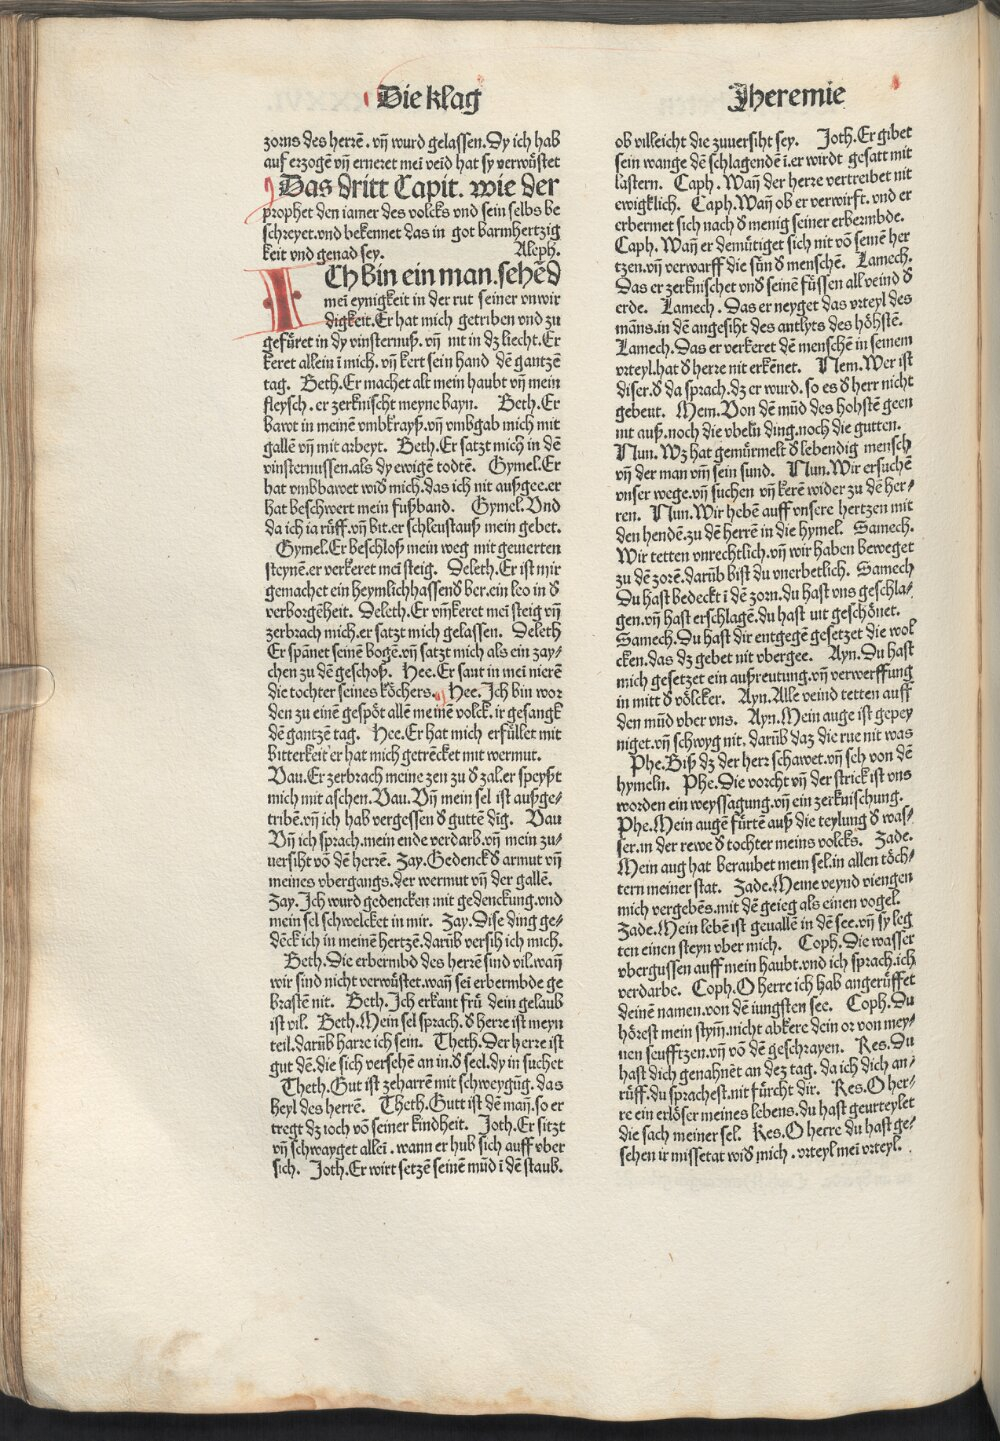 Die klag
Jheremie
zorns des herrē. vñ wurd gelassen. Dy ich hab
auf erzogē vñ erneret mei veid hat sy verwüstet
Das dritt Capit. wie der
prophet den iamer des volcks vnd sein selbs be
schreyet. vnd bekennet das in got barmhertzig
keit vnd genad sey. Aleph.
ICh Bin ein man. sehēd
mei eynigkeit in der rut seiner vnwir
digkeit. Er hat mich getriben vnd zu
gefüret in dy vinsternuß. vñ nit in dz liecht. Er
keret allein ī mich. vñ kert sein hand dē gantzē
tag. Beth. Er machet alt mein haubt vñ mein
fleysch. er zerknischt meyne bayn. Beth. Er
bawt in meinē vmbkrayß. vñ vmbgab mich mit
gallē vñ mit arbeyt. Beth. Er satzt mich in dē
vinsternussen. als dy ewigē todtē. Gymel. Er
hat vmbbawet wið mich. das ich nit außgee. er
hat beschwert mein fußband. Gymel. Vnd
da ich ia rüff. vñ bit. er schleustauß mein gebet.
Gymel. Er beschloß mein weg mit geuierten
steynē. er verkeret mei steig. Deleth. Er ist mir
gemachet ein heymlichhassend ber. ein leo in ð
verborgēheit. Deleth. Er vm̄keret mei steig vñ
zerbrach mich. er satzt mich gelassen. Deleth
Er spānet seinē bogē. vñ satzt mich als ein zay-
chen zu dē geschoß. Hee. Er sant in mei nierē
die tochter seines köchers. Hee. Ich bin wor
den zu einē gespöt allē meinē volck. ir gesangk
dē gantzē tag. Hee. Er hat mich erfüllet mit
bitterkeit er hat mich getrēcket mit wermut.
Vau. Er zerbrach meine zen zu ð zal. er speyßt
mich mit aschen. Vau. Vñ mein sel ist außge-
tribē. vñ ich hab vergessen ð guttē dīg. Vau
Vñ ich sprach. mein ende verdarb. vñ mein zu-
uersiht vō dē herrē. Zay. Gedenck ð armut vñ
meines vbergangs. der wermut vñ der gallē.
Zay. Ich wurd gedencken mit gedenckung. vnd
mein sel schwelcket in mir. Zay. Dise ding ge-
dēck ich in meinē hertzē. darūb versih ich mich.
Beth. Die erbermbd des herrē sind vil. wañ
wir sind nicht verwüstet. wañ sei erbermbde ge
brastē nit. Beth. Ich erkant frü dein gelaub
ist vil. Beth. Mein sel sprach. ð herre ist meyn
teil. darūb harre ich sein. Theth. Der herre ist
gut dē. die sich versehē an in. ð seel. dy in suchet
Theth. Gut ist zeharrē mit schweygūg. das
heyl des herrē. Theth. Gutt ist dē mañ. so er
tregt dz ioch vō seiner kindheit. Joth. Er sitzt
vñ schwayget allei. wann er hub sich auff vber
sich. Joth. Er wirt setzē seinē mūd ī dē staub.
ob villeicht die zuuersiht sey. Joth. Er gibet
sein wange dē schlagendē ī. er wirdt gesatt mit
lastern. Caph. Wañ der herre vertreibet nit
ewigklich. Caph. Wañ ob er verwirft. vnd er
erbermet sich nach ð menig seiner erbermbde.
Caph. Wañ er demütiget sich nit vō seinē her
tzen. vñ verwarff die sün ð menschē. Lamech.
Das er zerknischet vnð seinē füssen all veind ð
erde. Lamech. Das er neyget das vrteyl des
māns. in dē angesiht des antlyts des höhstē.
Lamech. Das er verkeret dē menschē in seinem
vrteyl. hat ð herre nit erkēnet. Mem. Wer ist
diser. ð da sprach. dz er wurd. so es ð herr nicht
gebeut. Mem. Von dē mūd des hohstē geen
nit auß. noch die vbeln ding. noch die gutten.
Nun. Wz hat gemürmelt ð lebendig mensch
vñ der man vm̄ sein sund. Nun. Wir ersuchē
vnser wege. vñ suchen vñ kerē wider zu dē her-
ren. Nun. Wir hebē auff vnsere hertzen mit
den hendē. zu dē herrē in die hymel. Samech.
Wir tetten vnrechtlich. vñ wir haben beweget
zu dē zorē. darūb bist du vnerbetlich. Samech
Du hast bedeckt ī dē zorn. du hast vns geschla-
gen. vñ hast erschlagē. du hast nit geschōnet.
Samech. Du hast dir entgegē gesetzet die wol
cken. das dz gebet nit vbergee. Ayn. Du hast
mich gesetzet ein außreutung. vñ verwerffung
in mitt ð völcker. Ayn. Alle veind tetten auff
den mūd vber vns. Ayn. Mein auge ist gepey
niget. vñ schwyg nit. darūb daz die rue nit was
Phe. Biß dz der herr schawet. vñ seh von dē
hymeln. Phe. Die vorcht vñ der strick ist vns
worden ein weyssagung. vñ ein zerknischung.
Phe. Mein augē fürtē auß die teylung ð was-
ser. in der rewe ð tochter meins volcks. Zade.
Mein aug hat beraubet mein sel. in allen töch-
tern meiner stat. Zade. Meine veynd viengen
mich vergebēs. mit dē geieg als einen vogel.
Zade. Mein lebē ist geuallē in dē see. vñ sy leg
ten einen steyn vber mich. Coph. Die wasser
vbergussen auff mein haubt. vnd ich sprach. ich
verdarbe. Coph. O herre ich hab angerüffet
deinē namen. von dē iungsten see. Coph. Du
hörest mein stym̄. nicht abkere dein or von mey-
nen seufftzen. vñ vō dē geschrayen. Res. Du
hast dich genahnēt an dez tag. da ich dich an-
rüff. du sprachest. nit fürcht dir. Res. O her-
re ein erlöser meines lebens. du hast geurteylet
die sach meiner sel. Res. O herre du hast ge-
sehen ir missetat wið mich. vrteyl mei vrteyl.